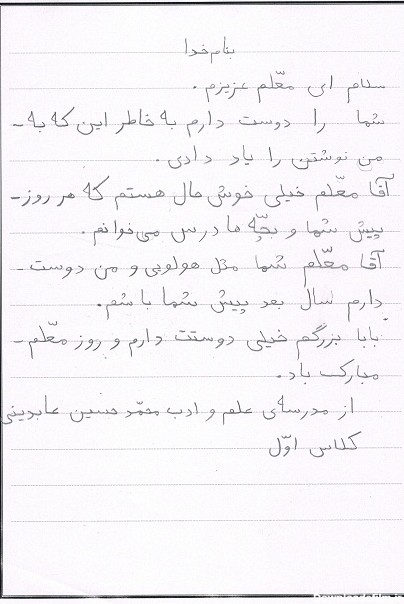 بنام خدا
سلام ای معلّم عزیزم .
شما را دوست دارم به خاطر این که به -
من نوشتن را یاد دادی .
آقا معلّم خیلی خوش حال هستم که هر روز -
پیش شما و بچّه ها درس می خوانم .
آقا معلّم شما مثل هولویی و من دوست -
دارم سال بعد پیش شما باشم .
بابا بزرگم خیلی دوستت دارم و روز معلّم -
مبارک باد .
از مدرسه ی علم و ادب محمّد حسین عابدینی
کلاس اوّل